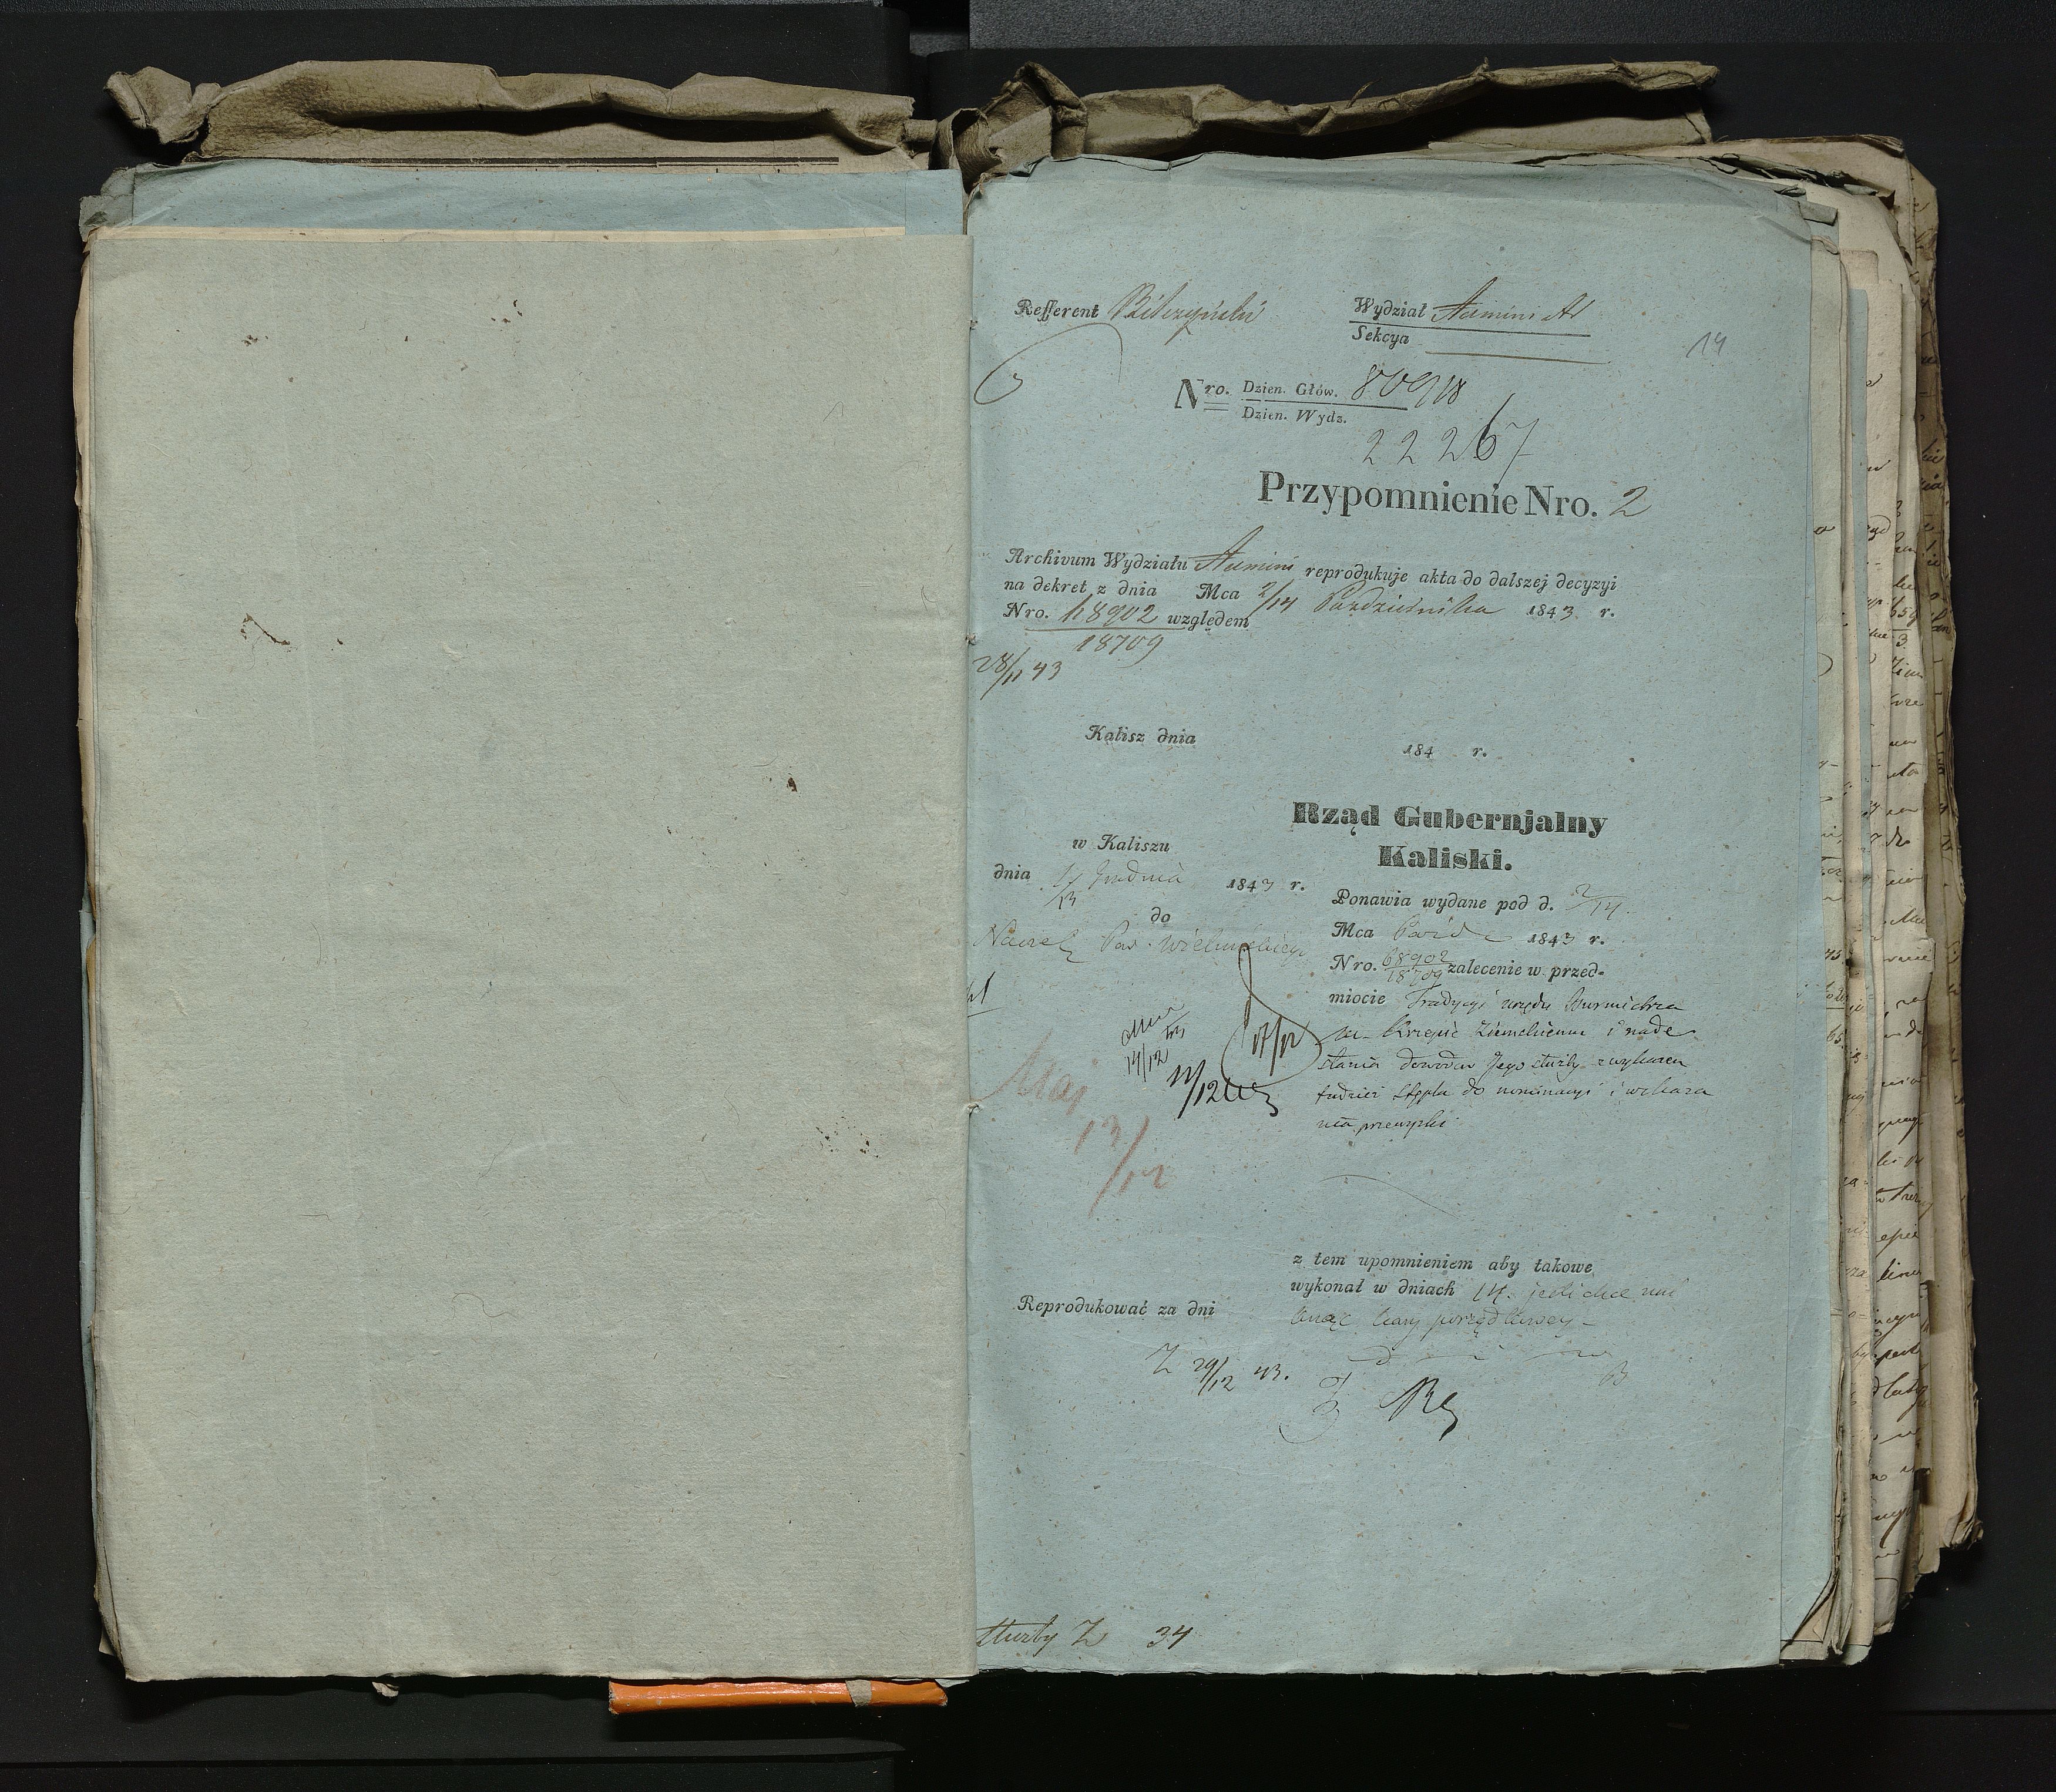 Refferent Bilczyński
Wydział Admini
Sekcya
14
Nro. Dzien. Głów. 80918
Dzien. Wydz.
22267
Przypomnienie Nro. 2
Archivum Wydziału Admini reprodukuje akta do dalszej decyzyi
na dekret z dnia Mca 2/14 Pazdziernika 1843 r.
Nro. 68902 względem
18709
28/11 43
Kalisz dnia 184 r.
Rząd Gubernjalny
Kaliski.
w Kaliszu
dnia 1/13 Grudnia 1843 r.
do
Naczel Pow. Wieluńskiego
Ponawia wydane pod d. 2/14
Mca Pazd 1843 r.
Nro. 68902/18709 zalecenie w przed-
miocie Tradycyi urzędu Burmistrza
m. Krzepic Ziemskiemu i nade
słania dowodów Jego służby z wykazem
tudzież Stępla do nominacyi i wykaza
nia
14/12
17/12
11/12
Maj
13/12
z tem upomnieniem aby takowe
wykonał w dniach 14. jeśli chce uni
knąć kary porządkowey
Reprodukować za dni
Z 29/12 43.
Służby Z 34